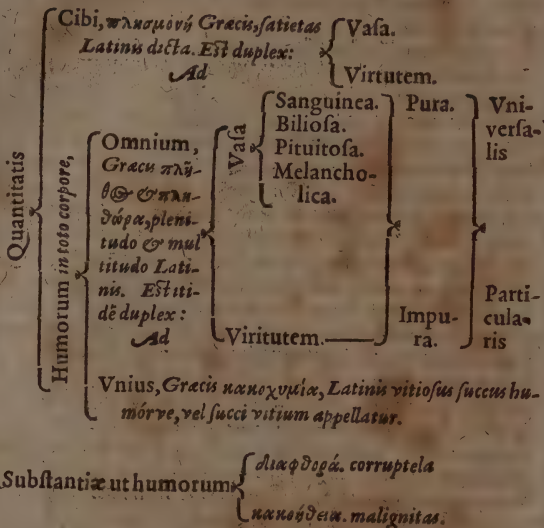 Quantitatis
Cibi, πλησμονή Græcis, ſatietas
Latinis dicta. Eſt duplex:
Ad
Vaſa.
Virtutem.
Humorum in toto corpore,
Omnium,
Græcis πλῆ-
θος & πλη-
θώρα, pleni-
tudo & mul
titudo Lati-
nis. Eſt iti-
dē duplex:
Ad
Vaſa
Sanguinea.
Bilioſa.
Pituitoſa.
Melancho-
lica.
Viritutem.
Pura.
Impu-
ra.
Vni-
verſa-
lis
Parti-
cula-
ris
Vnius, Græcis κακοχυμία, Latinis vitioſus ſuccus hu-
mórve, vel ſucci vitium appellatur.
Subſtantiæ ut humorum
διαφθορά. corruptela
κακοήθεια. malignitas.